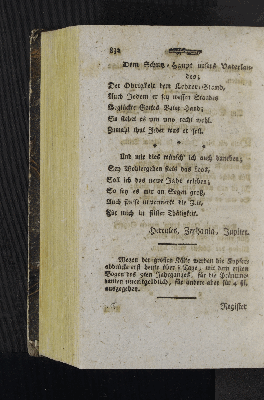 832
Dem Schutz-Haupt unsers Vaterlan-
des;
Der Obrigkeit dem Lehrer-Stand,
Auch Jedem er sey wessen Standes
Beglücke Gottes Vater Hand;
So stehet es um uns recht wohl.
Zumahl thut Jeder was er soll.
* * *
Und mir dies wünsch' ich auch daneben;
Sey Wohlergehen stets das Loos,
Soll ich das neue Jahr erleben;
So sey es mir an Segen groß,
Auch fliesse unvermerkt die Zeit,
Für mich in stiller Thätigkeit.
Hercules, Zephania, Jupiter.
Wegen der großen Kälte werden die Kupfer-
abdrücke erst heute über 8 Tage, mit dem ersten
Bogen des 9ten Jahrganges, für die Pränume-
ranten unentgeldlich, für andere aber für 4 ßl.
ausgegeben.
Register